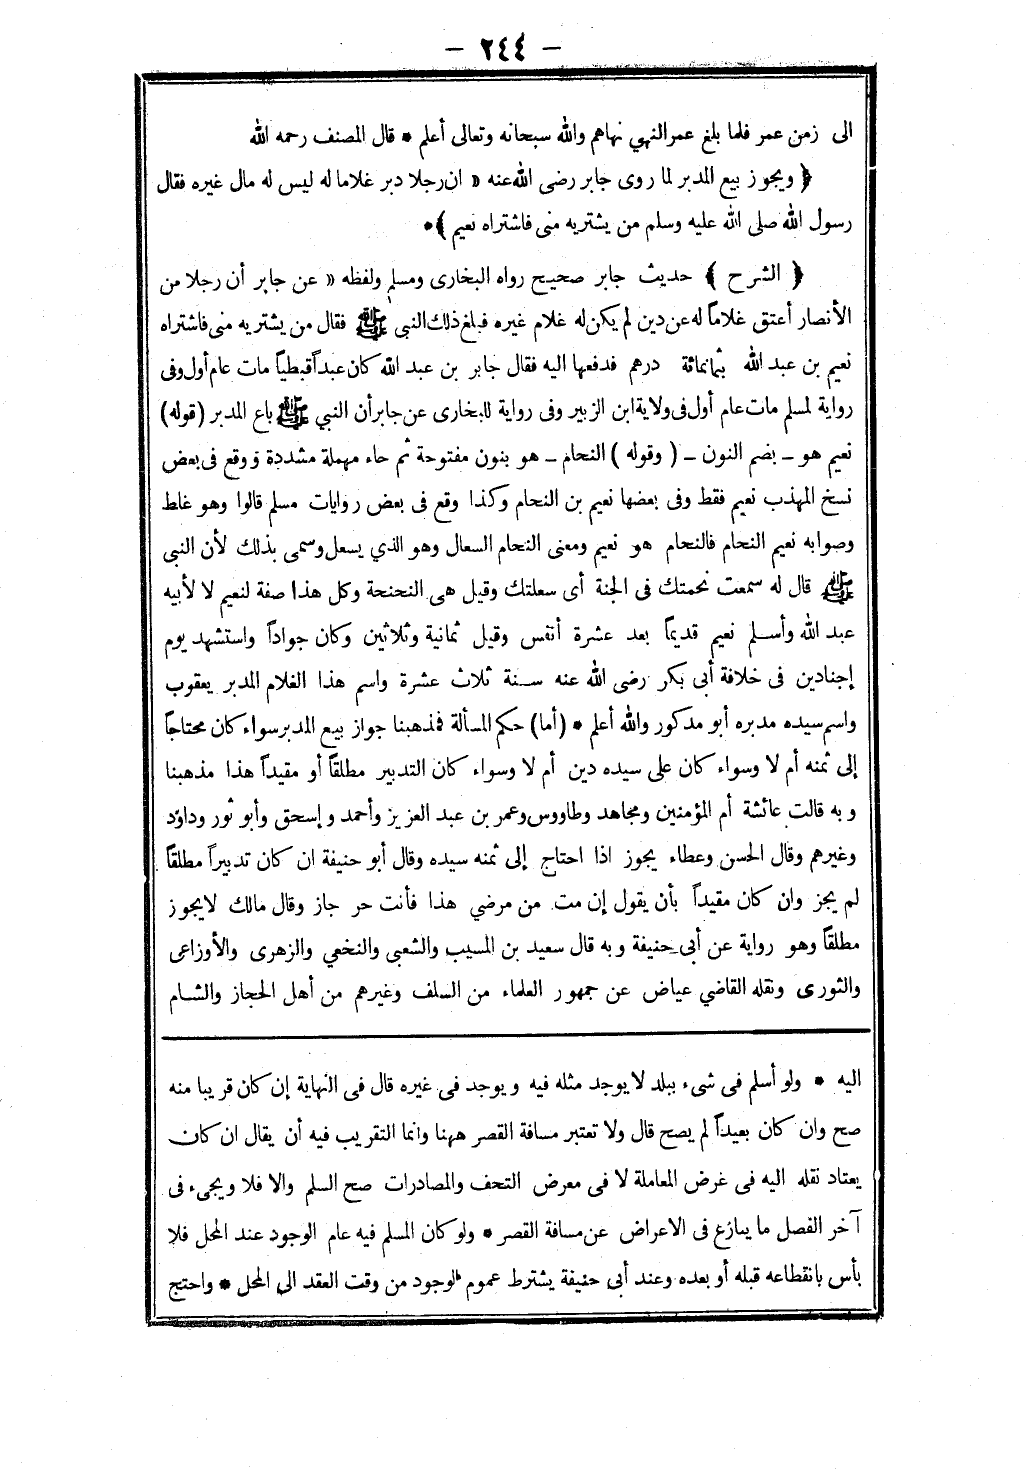 — ٢٤٤ —
الى زمن عمر فلما بلغ عمر النهي نهاهم والله سبحانه وتعالى أعلم * قال المصنف رحمه الله
﴿ ويجوز بيع المدبر لما روى جابر رضى الله عنه « ان رجلا دبر غلاما له ليس له مال غيره فقال
رسول الله صلى الله عليه وسلم من يشتريه منى فاشتراه نعيم ﴾ *
﴿ الشرح ﴾ حديث جابر صحيح رواه البخارى ومسلم ولفظه « عن جابر أن رجلا من
الأنصار أعتق غلاماً له عن دين لم يكن له غلام غيره فبلغ ذلك النبى ﷺ فقال من يشتريه منى فاشتراه
نعيم بن عبد الله بثمانمائة درهم فدفعها اليه فقال جابر بن عبد الله كان عبداً قبطياً مات عام أول وفى
رواية لمسلم مات عام أول فى ولاية ابن الزبير وفى رواية للبخارى عن جابر أن النبي ﷺ باع المدبر (قوله)
نعيم هو ــ بضم النون ــ ( وقوله ) النحام ــ هو بنون مفتوحة ثم حاء مهملة مشددة ووقع فى بعض
نسخ المهذب نعيم فقط وفى بعضها نعيم بن النحام وكذا وقع فى بعض روايات مسلم قالوا وهو غلط
وصوابه نعيم النحام فالنحام هو نعيم ومعنى النحام السعال وهو الذي يسعل وسمى بذلك لأن النبى
ﷺ قال له سمعت نحمتك فى الجنة أى سعلتك وقيل هى النحنحة وكل هذا صفة لنعيم لا لأبيه
عبد الله وأسلم نعيم قديماً بعد عشرة أنفس وقيل ثمانية وثلاثين وكان جواداً واستشهد يوم
إجنادين فى خلافة أبى بكر رضى الله عنه سنة ثلاث عشرة واسم هذا الغلام المدبر يعقوب
واسم سيده مدبره أبو مدكور والله أعلم * (أما) حكم المسألة فمذهبنا جواز بيع المدبر سواء كان محتاجاً
إلى ثمنه أم لا وسواء كان على سيده دين أم لا وسواء كان التدبير مطلقاً أو مقيداً هذا مذهبنا
وبه قالت عائشة أم المؤمنين ومجاهد وطاووس وعمر بن عبد العزيز وأحمد وإسحق وأبو ثور وداؤد
وغيرهم وقال الحسن وعطاء يجوز اذا احتاج إلى ثمنه سيده وقال أبو حنيفة ان كان تدبيراً مطلقاً
لم يجز وان كان مقيداً بأن يقول إن مت من مرضي هذا فأنت حر جاز وقال مالك لا يجوز
مطلقاً وهو رواية عن أبى حنيفة وبه قال سعيد بن المسيب والشعبى والنخعي والزهرى والأوزاعى
والثورى ونقله القاضي عياض عن جمهور العلماء من السلف وغيرهم من أهل الحجاز والشام
اليه * ولو أسلم فى شىء ببلد لا يوجد مثله فيه ويوجد فى غيره قال فى النهاية إن كان قريبا منه
صح وان كان بعيداً لم يصح قال ولا تعتبر مسافة القصر ههنا وانما التقريب فيه أن يقال ان كان
يعتاد نقله اليه فى غرض المعاملة لا فى معرض التحف والمصادرات صح السلم والا فلا ويجىء فى
آخر الفصل ما ينازع فى الاعراض عن مسافة القصر * ولو كان المسلم فيه عام الوجود عند المحل فلا
بأس بانقطاعه قبله أو بعده وعند أبى حنيفة يشترط عموم الوجود من وقت العقد الى المحل * واحتج